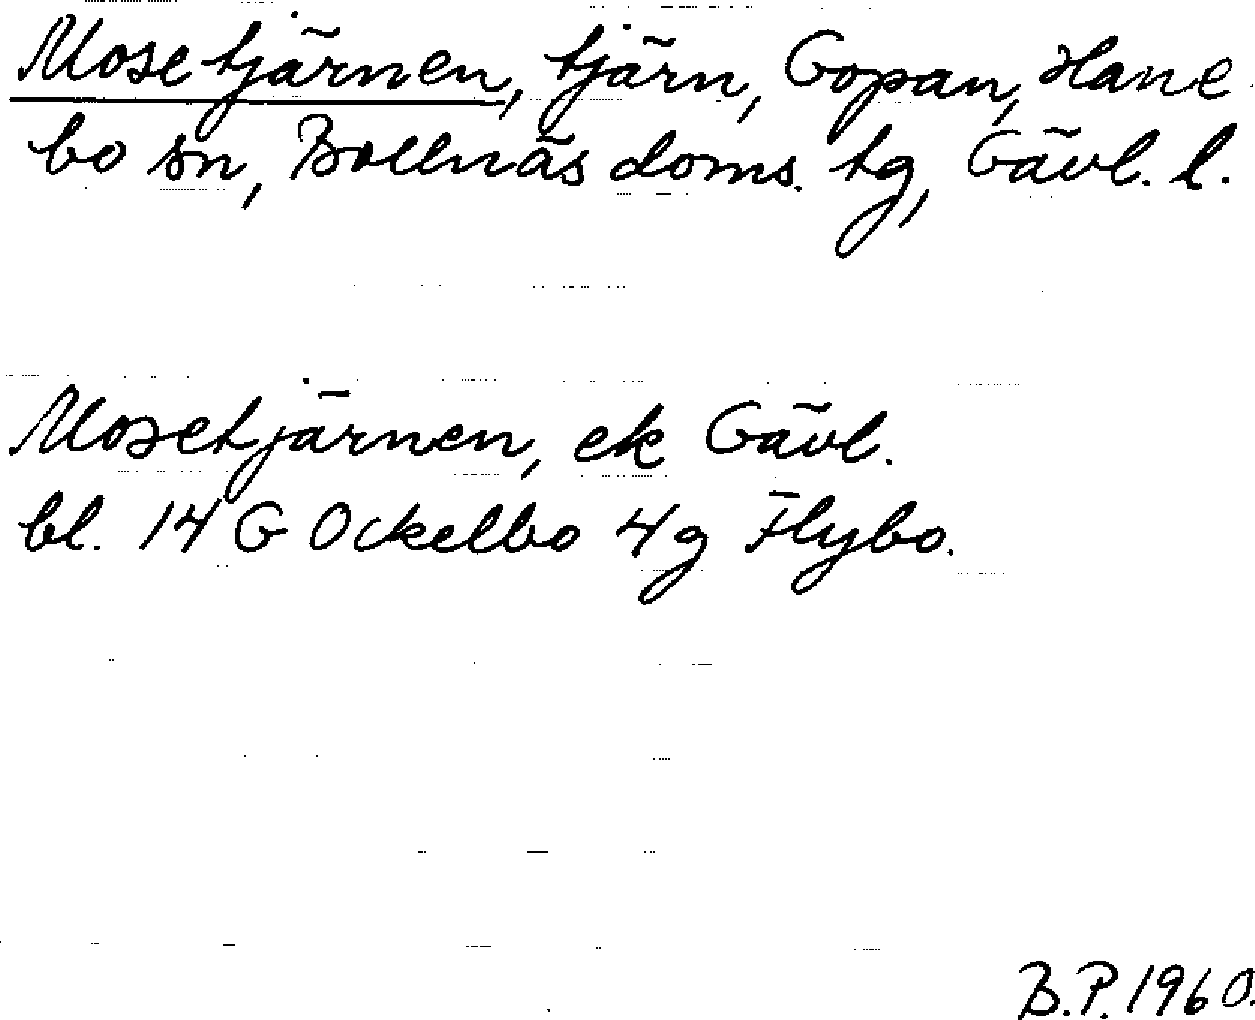 Mosetjärnen, tjärn, Gopan, Hane
bo sn, Bollnäs doms. tg, Gävl. l.
Mosetjärnen, ek Gävl.
bl. 14 G Ockelbo 4g Flybo.
B.P. 1960.